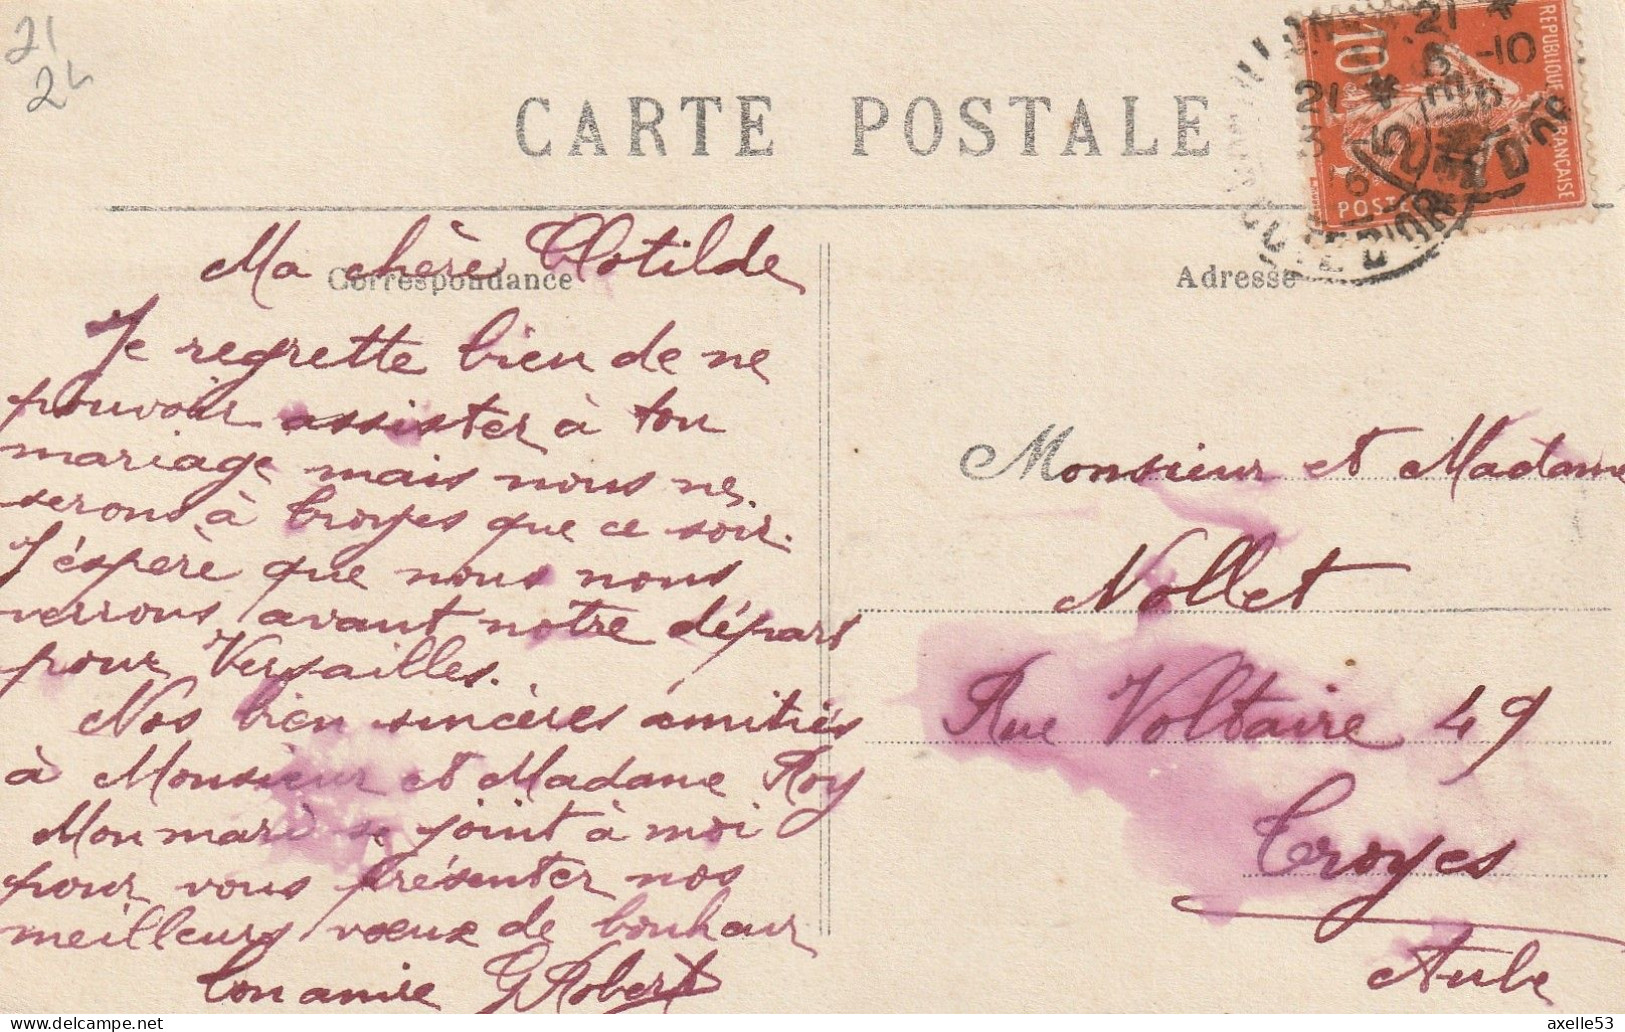 21
24
CARTE POSTALE
REPUBLIQUE FRANÇAISE
10
POSTES
21 *
-10
CÔTE D'OR
Correspondance
Adresse
Ma chère Clotilde
Je regrette bien de ne
pouvoir assister à ton
mariage mais nous ne
serons à Troyes que ce soir.
J'éspère que nous nous
verrons avant notre départ
pour Versailles.
Nos bien sincères amitiés
à Monsieur et Madame Roy
Mon mari se joint à moi
pour vous présenter nos
meilleurs voeux de bonheur
Ton amie G Robert
Monsieur et Madame
Nollet
Rue Voltaire 49
Troyes
Aube
delcampe.net
axelle53